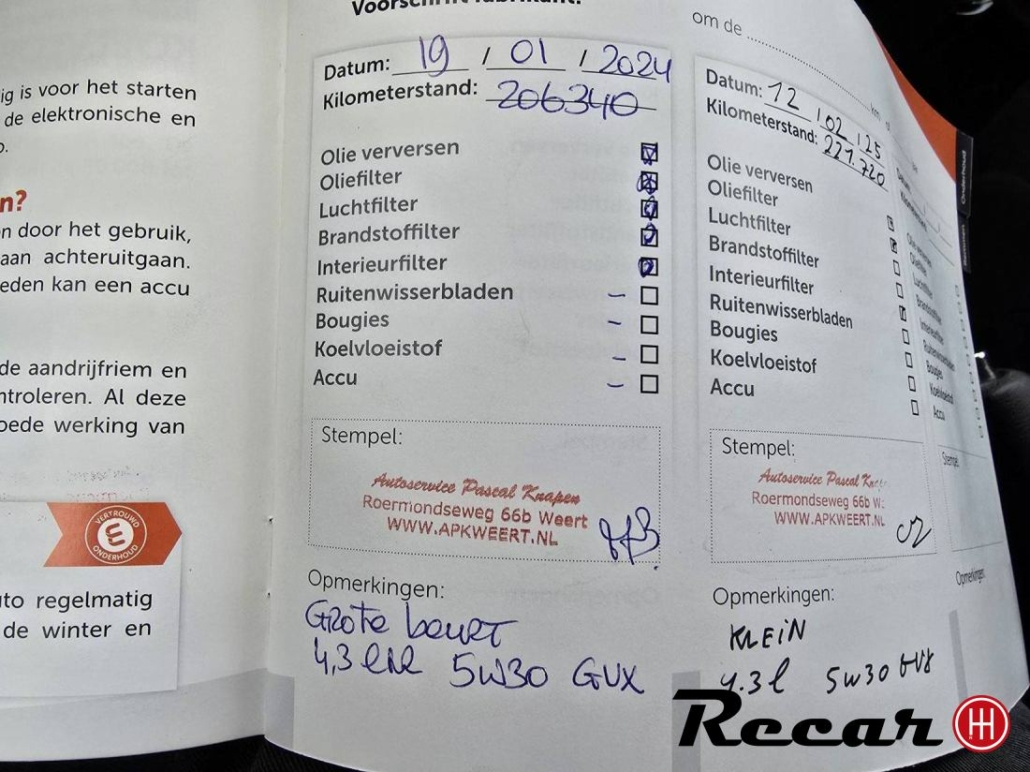 ig is voor het starten
de elektronische en
n?
n door het gebruik,
aan achteruitgaan.
eden kan een accu
de aandrijfriem en
ntroleren. Al deze
oede werking van
VERTROUWD
ONDERHOUD
to regelmatig
de winter en
Voorschrift fabrikant:
Datum: 19 / 01 / 2024
Kilometerstand: 206340
Olie verversen
Oliefilter
Luchtfilter
Brandstoffilter
Interieurfilter
Ruitenwisserbladen
Bougies
Koelvloeistof
Accu
Stempel:
Autoservice Pascal Knapen
Roermondseweg 66b Weert
WWW.APKWEERT.NL
Opmerkingen:
Grote beurt
4,3 5W30 GVX
om de
Datum: 12 / 02 / 25
Kilometerstand: 221.720
Olie verversen
Oliefilter
Luchtfilter
Brandstoffilter
Interieurfilter
Ruitenwisserbladen
Bougies
Koelvloeistof
Accu
Stempel:
Autoservice Pascal
Roermondseweg 66b W
WWW.APKWEERT.NL
Opmerkingen:
KLEIN
4.3 l 5W30 GVX
Onderhoud
Oliefilter
Luchtfilter
Brandstoffilter
Interieurfilter
Ruitenwisserbladen
Bougies
Koelvloeistof
Accu
Stempel
Opmerkingen
Recar